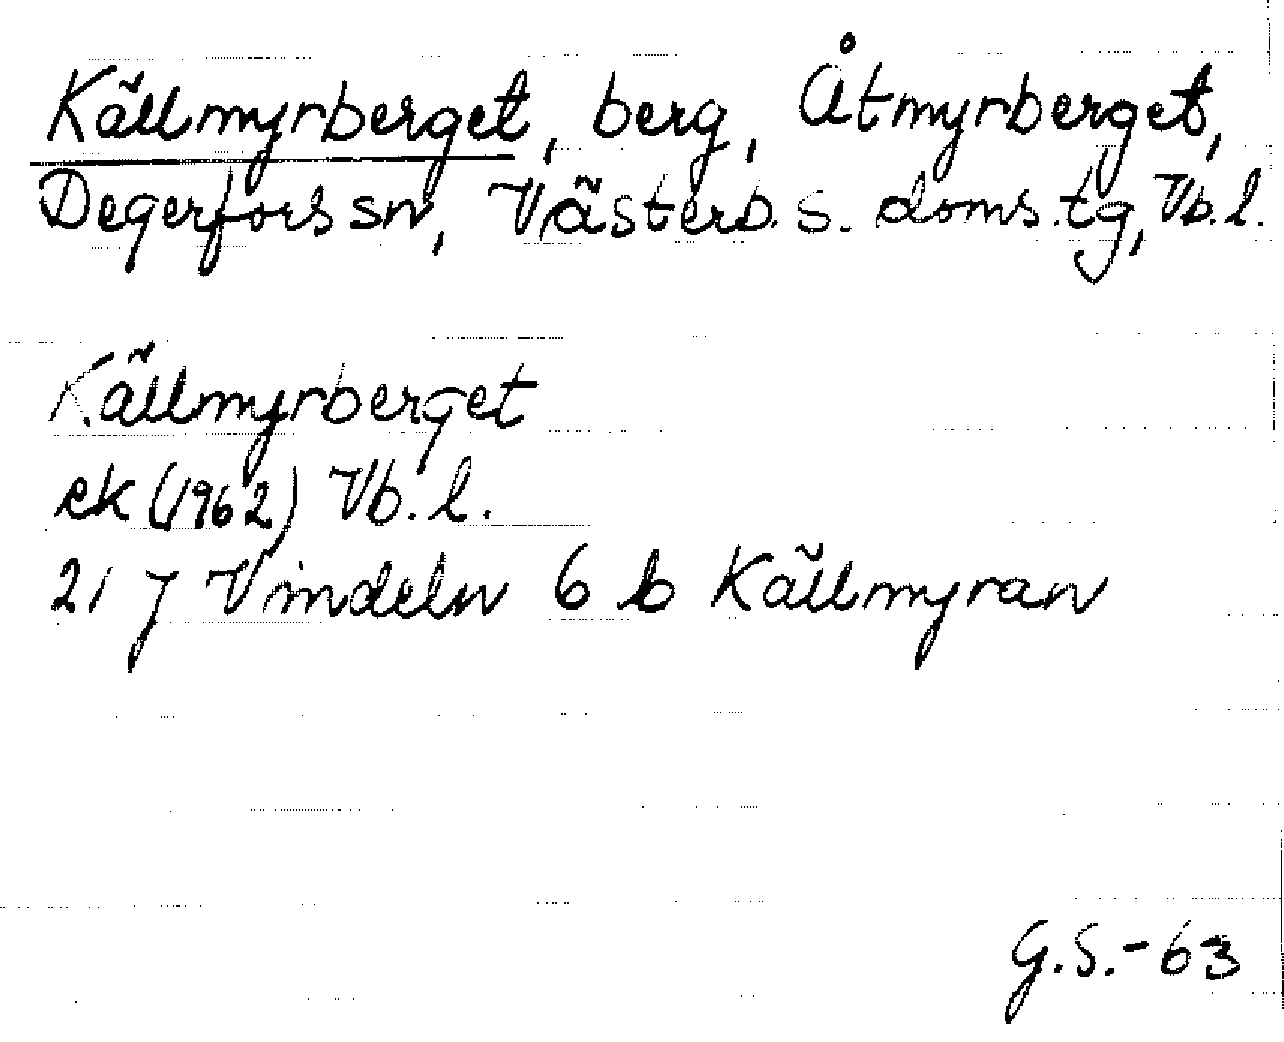 Källmyrberget, berg, Åtmyrberget,
Degerfors sn, Västerb. s. doms. tg, Vb. l.
Källmyrberget
ek (1962) Vb. l.
21 J Vindeln 6 b Källmyran
G.S.-63